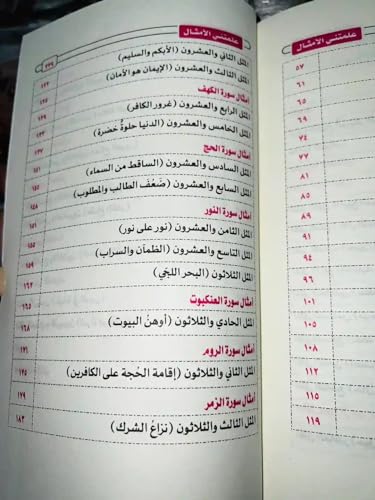 علمتني الأمثال
٥٧
٦١
٦٥
٦٩
٧٤
٧٧
٨١
٨٥
٨٩
٩١
٩٤
٩٦
١٠١
١٠٥
١٠٨
١١٢
١١٥
١١٩
علمتني الأمثال ٢٣٩
المثل الثاني والعشرون (الأبكم والسليم)
المثل الثالث والعشرون (الإيمان هو الأمان)
أمثال سورة الكهف
المثل الرابع والعشرون (غرور الكافر)
المثل الخامس والعشرون (الدنيا حلوةٌ خضرة)
أمثال سورة الحج
المثل السادس والعشرون (الساقط من السماء)
المثل السابع والعشرون (ضَعُف الطالب والمطلوب)
أمثال سورة النور
المثل الثامن والعشرون (نور على نور) ١٥٥
المثل التاسع والعشرون (الظمآن والسراب) ١٥٩
المثل الثلاثون (البحر اللجّي) ١٦٢
أمثال سورة العنكبوت ١٦٥
المثل الحادي والثلاثون (أوهنُ البيوت) ١٦٨
أمثال سورة الروم ١٧١
المثل الثاني والثلاثون (إقامة الحُجة على الكافرين) ١٧٥
أمثال سورة الزمر ١٧٩
المثل الثالث والثلاثون (نزاعُ الشرك) ١٨٢